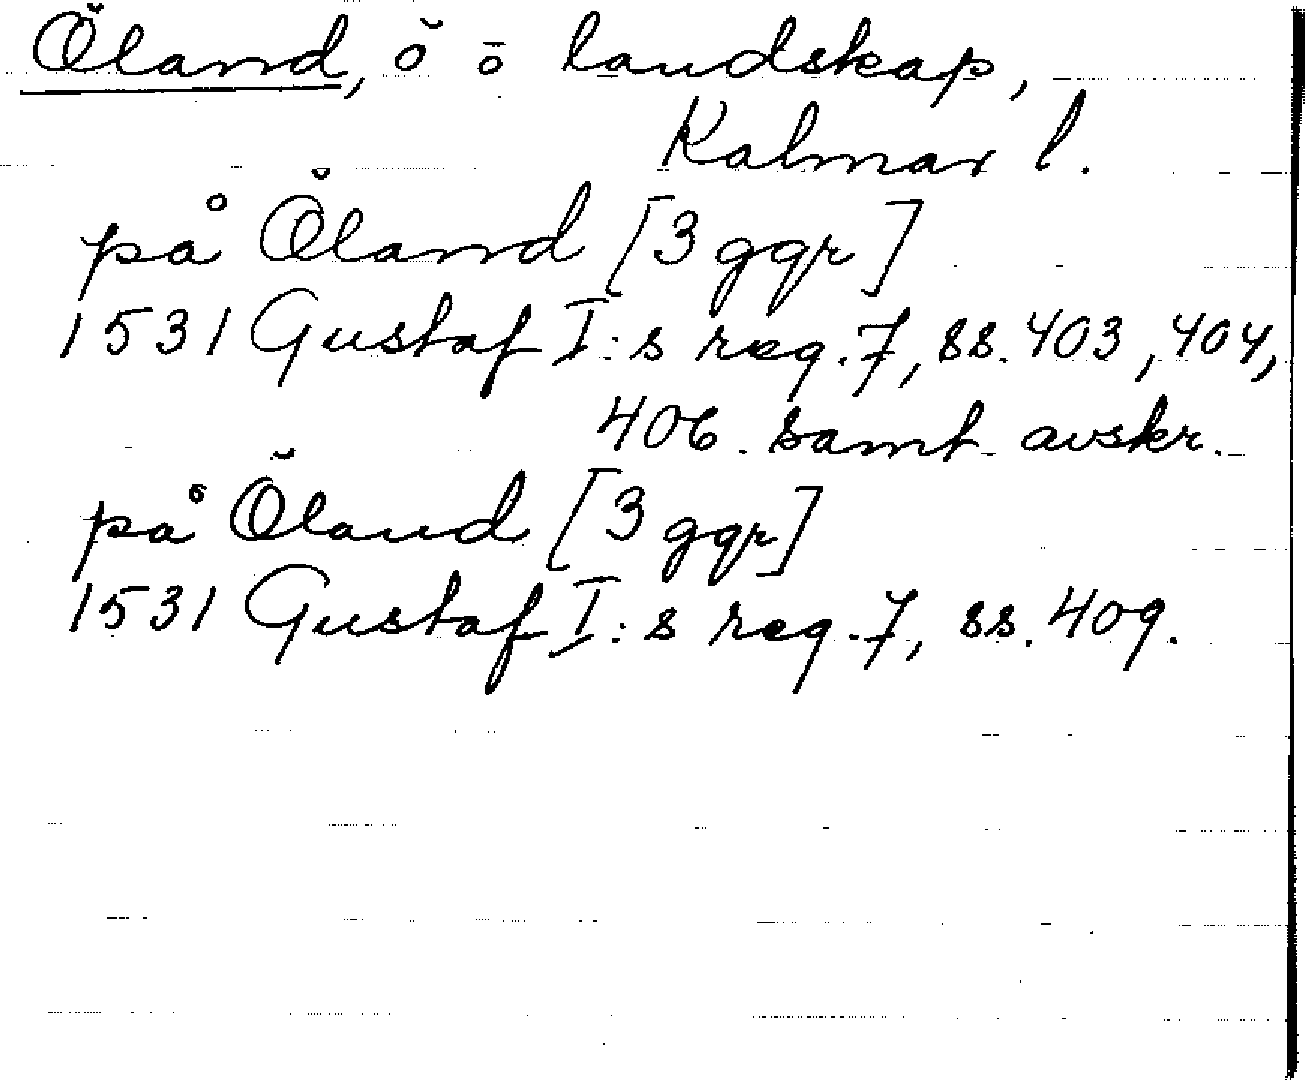 Öland, ö o landskap,
Kalmar l.
på Öland [3 ggr]
1531 Gustaf I:s reg. 7, ss. 403, 404,
406. samt avskr.
på Öland [3 ggr]
1531 Gustaf I:s reg. 7, ss. 409.